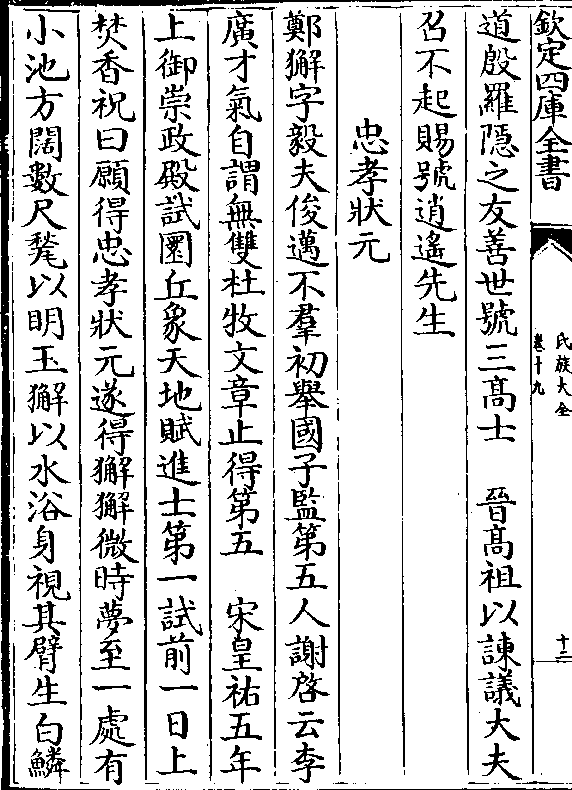 欽定四庫全書
氏族大全
卷十九
十二
道殷羅隱之友善世號三髙士　晉髙祖以諫議大夫
召不起賜號逍遙先生
忠孝狀元
鄭獬字毅夫俊邁不羣初舉國子監第五人謝啓云李
廣才氣自謂無雙杜牧文章止得第五　宋皇祐五年
上御崇政殿試圜丘象天地賦進士第一試前一日上
焚香祝曰願得忠孝狀元遂得獬獬微時夢至一處有
小池方闊數尺甃以明玉獬以水浴身視其臂生白鱗